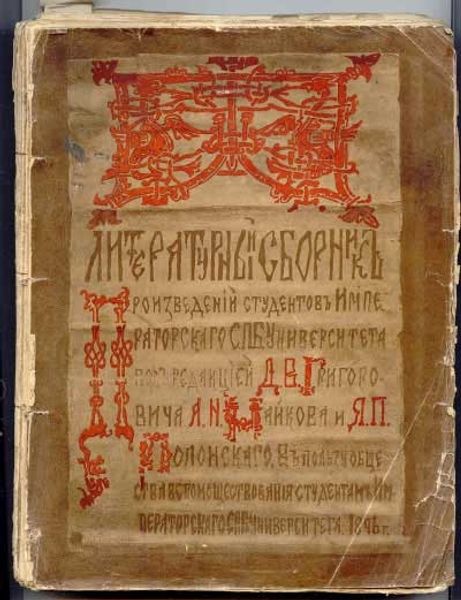 ЛИТЕРАТУРНЫЙ СБОРНИКЪ
ПРОИЗВЕДЕНІЙ СТУДЕНТОВЪ ИМПЕ
РАТОРСКАГО СПБ УНИВЕРСИТЕТА
ПОДЪ РЕДАКЦІЕЙ Д.В. ГРИГОРО-
ВИЧА А.Н. МАЙКОВА И Я.П.
ПОЛОНСКАГО. ВЪ ПОЛЬЗУ ОБЩЕ
СТВА ВСПОМОЩЕСТВОВАНІЯ СТУДЕНТАМЪ ИМ-
ПЕРАТОРСКАГО СПБ УНИВЕРСИТЕТА. 1896 Г.